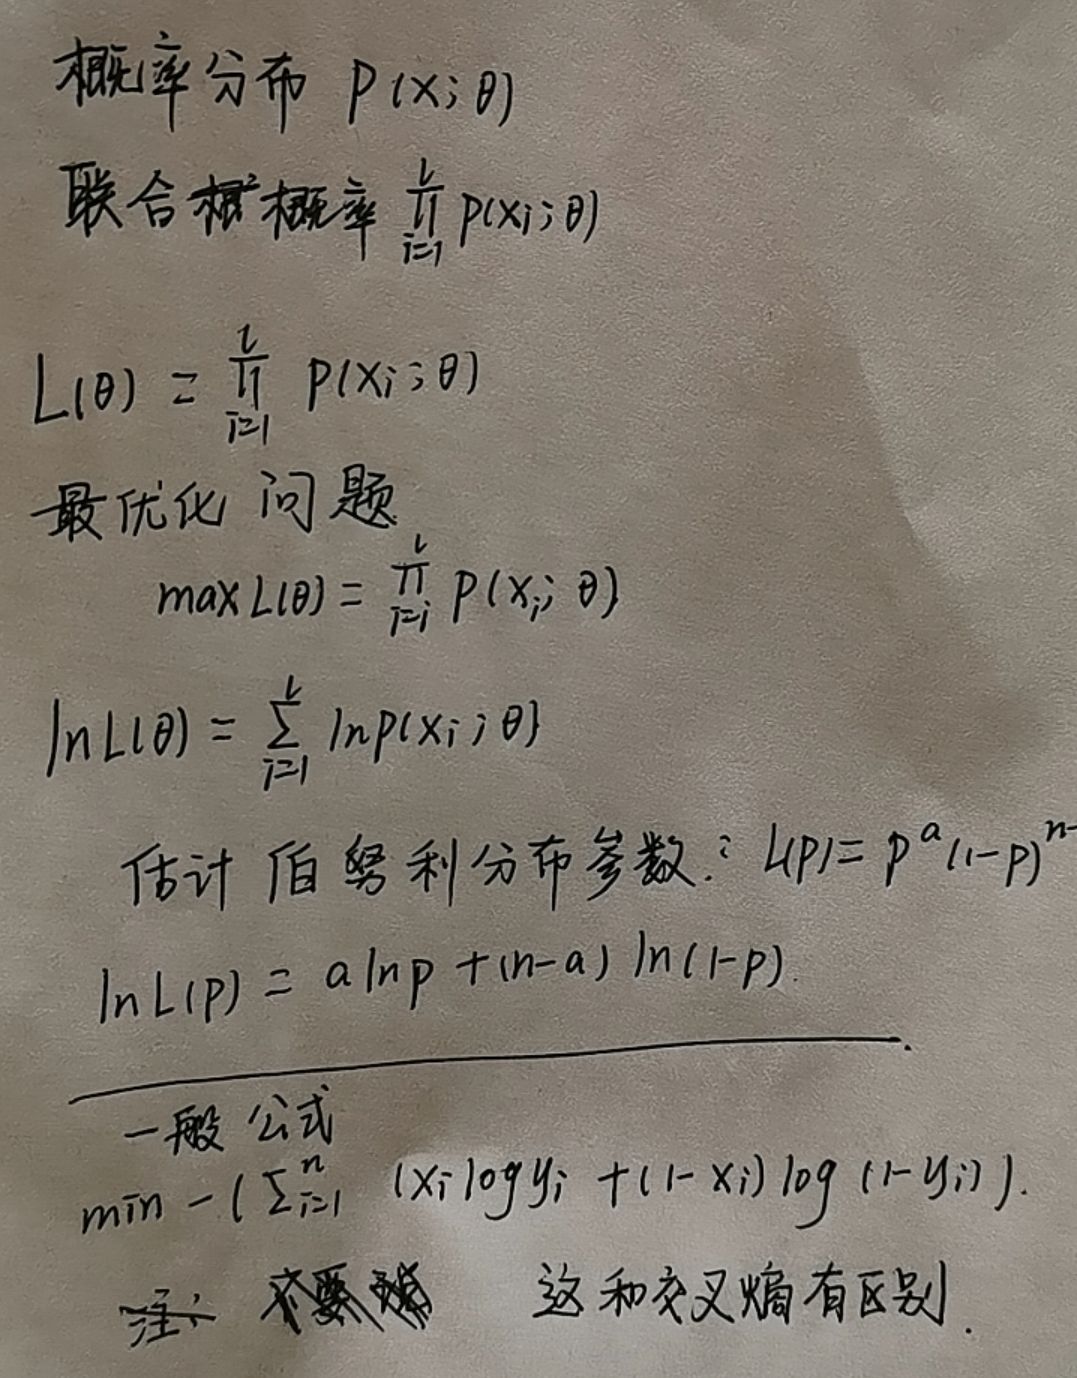 概率分布 P(x;θ)
联合概率 ∏_{i=1}^{l} p(xi;θ)
L(θ) = ∏_{i=1}^{l} p(xi;θ)
最优化问题
max L(θ) = ∏_{i=i}^{l} p(xi;θ)
ln L(θ) = ∑_{i=1}^{l} ln p(xi;θ)
估计伯努利分布参数: L(p) = p^a (1-p)^{n-
ln L(p) = a ln p + (n-a) ln(1-p).
一般公式
min -(∑_{i=1}^{n} (xi log yi + (1-xi) log (1-yi)).
这和交叉熵有区别.